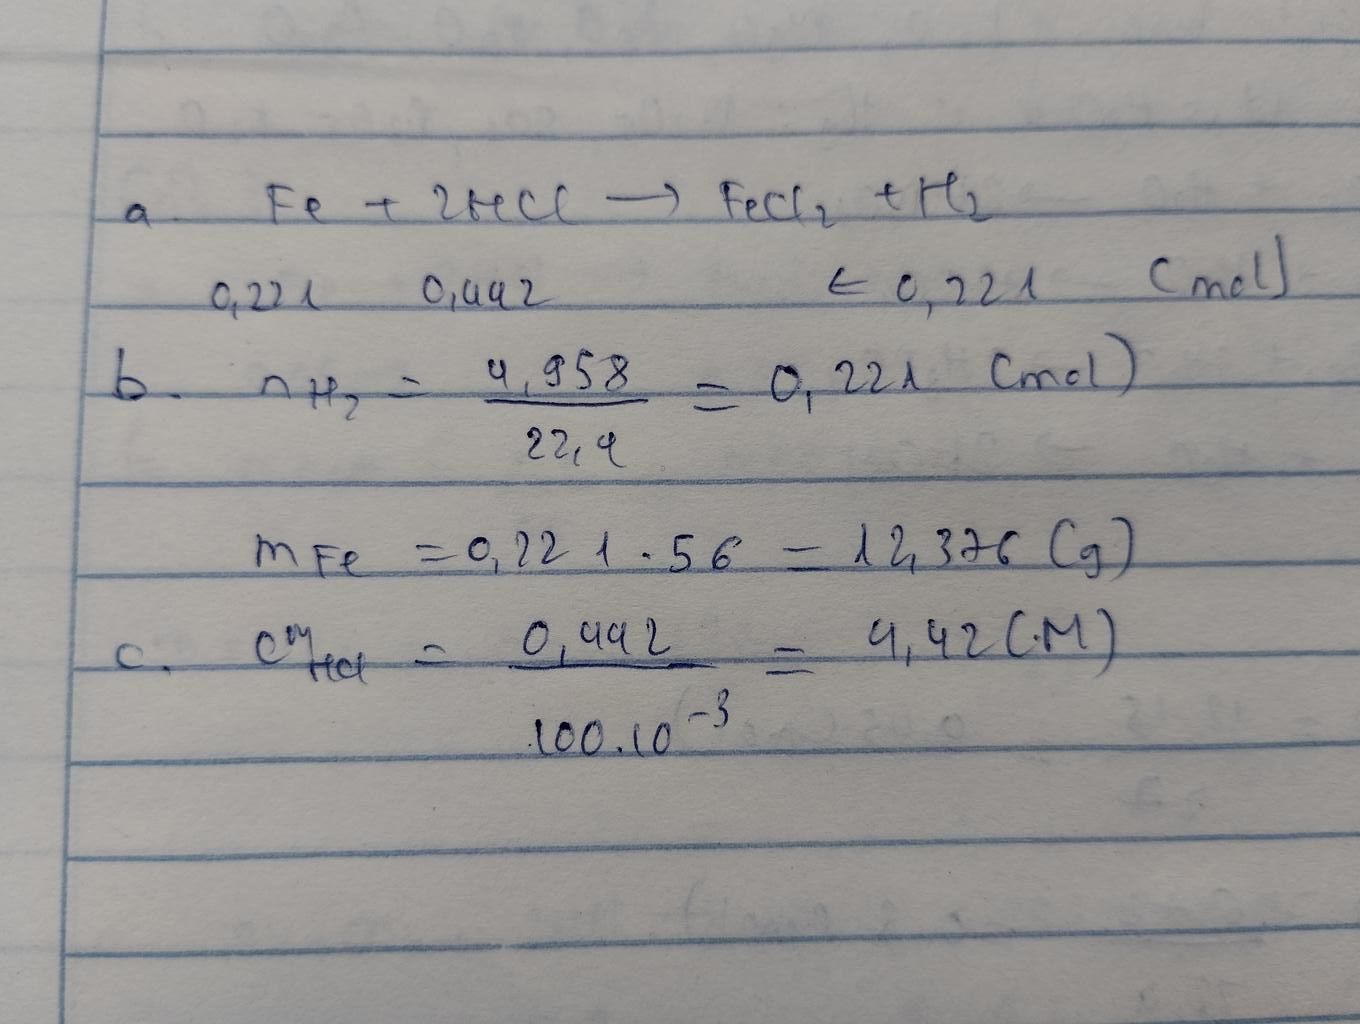 a. Fe + 2HCl → FeCl₂ + H₂
0,221 0,442 ← 0,221 (mol)
b. nH₂ = 4,958 / 22,4 = 0,221 (mol)
mFe = 0,221 . 56 = 12,376 (g)
c. CMHCl = 0,442 / 100.10⁻³ = 4,42 (M)